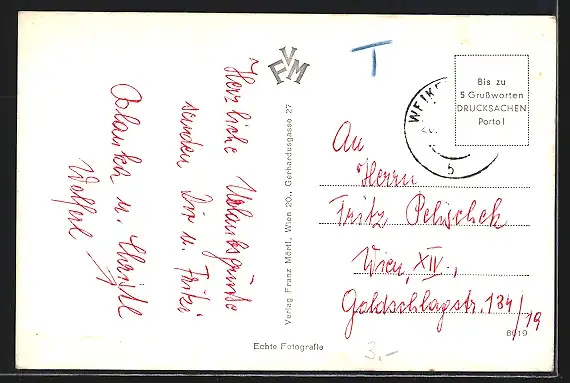 Herzliche Urlaubsgrüße
senden Dir u. Fritzi
Blanka u. Christl
Wolferl
Verlag Franz Mörtl, Wien 20., Gerhardusgasse 27
FVM
T
Bis zu
5 Grußworten
DRUCKSACHEN
Porto!
WEIKE
5
An
Herrn
Fritz Pelischek
Wien, XIV.,
Goldschlagstr. 134/19
8019
Echte Fotografie
3.-